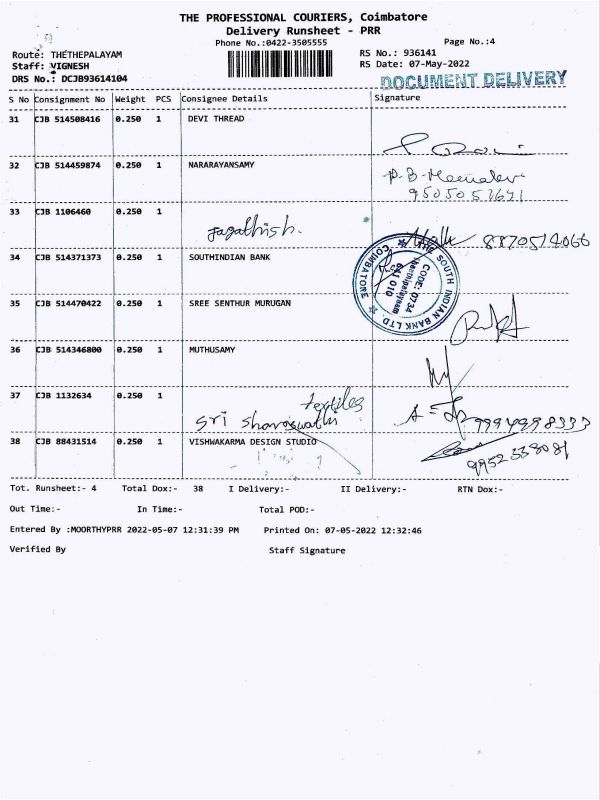 THE PROFESSIONAL COURIERS, Coimbatore
Delivery Runsheet - PRR
Phone No.:0422-3505555
Page No.:4
Route: THETHEPALAYAM
RS No.: 936141
Staff: VIGNESH
RS Date: 07-May-2022
DRS No.: DCJB93614104
DOCUMENT DELIVERY
S No Consignment No Weight PCS Consignee Details Signature
31 CJB 514508416 0.250 1 DEVI THREAD
32 CJB 514459874 0.250 1 NARARAYANSAMY
33 CJB 1106460 0.250 1
Jagathish. 8870514066
34 CJB 514371373 0.250 1 SOUTHINDIAN BANK
THE SOUTH INDIAN BANK LTD
COIMBATORE
CODE: 0734
641 010
35 CJB 514470422 0.250 1 SREE SENTHUR MURUGAN
36 CJB 514346800 0.250 1 MUTHUSAMY
37 CJB 1132634 0.250 1
textiles
Sri
38 CJB 88431514 0.250 1 VISHWAKARMA DESIGN STUDIO
Tot. Runsheet:- 4 Total Dox:- 38 I Delivery:- II Delivery:- RTN Dox:-
Out Time:- In Time:- Total POD:-
Entered By :MOORTHYPRR 2022-05-07 12:31:39 PM Printed On: 07-05-2022 12:32:46
Verified By Staff Signature